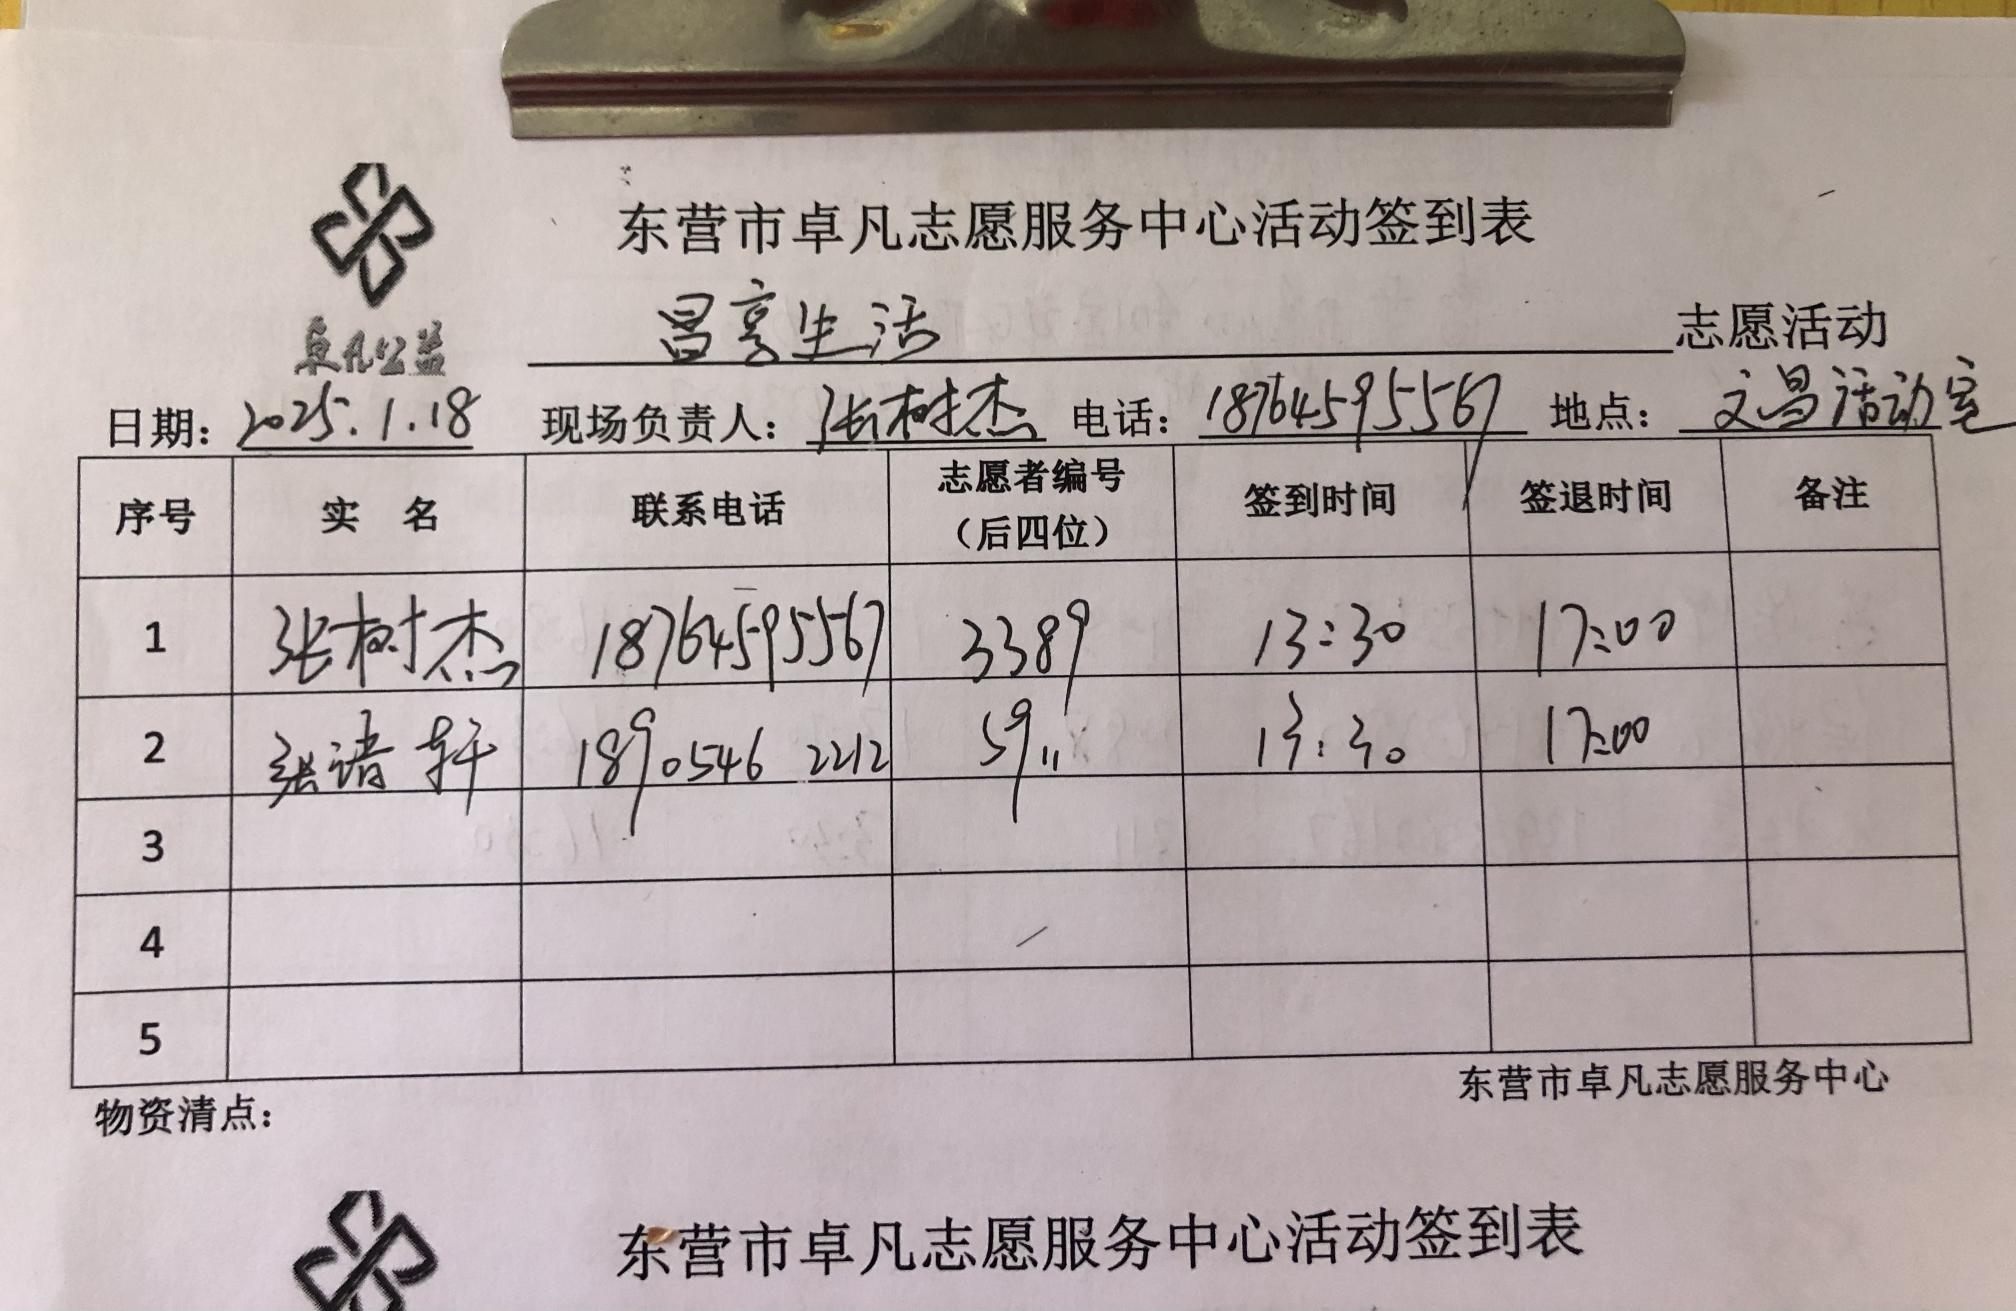 东营市卓凡志愿服务中心活动签到表
卓凡公益
昌享生活 志愿活动
日期：2025.1.18 现场负责人：张树杰 电话：18764595567 地点：文昌活动室
序号 实 名 联系电话 志愿者编号（后四位） 签到时间 签退时间 备注
1 张树杰 18764595567 3389 13:30 17:00
2 张诸轩 18905462212 5911 13:30 17:00
3
4
5
东营市卓凡志愿服务中心
物资清点：
东营市卓凡志愿服务中心活动签到表